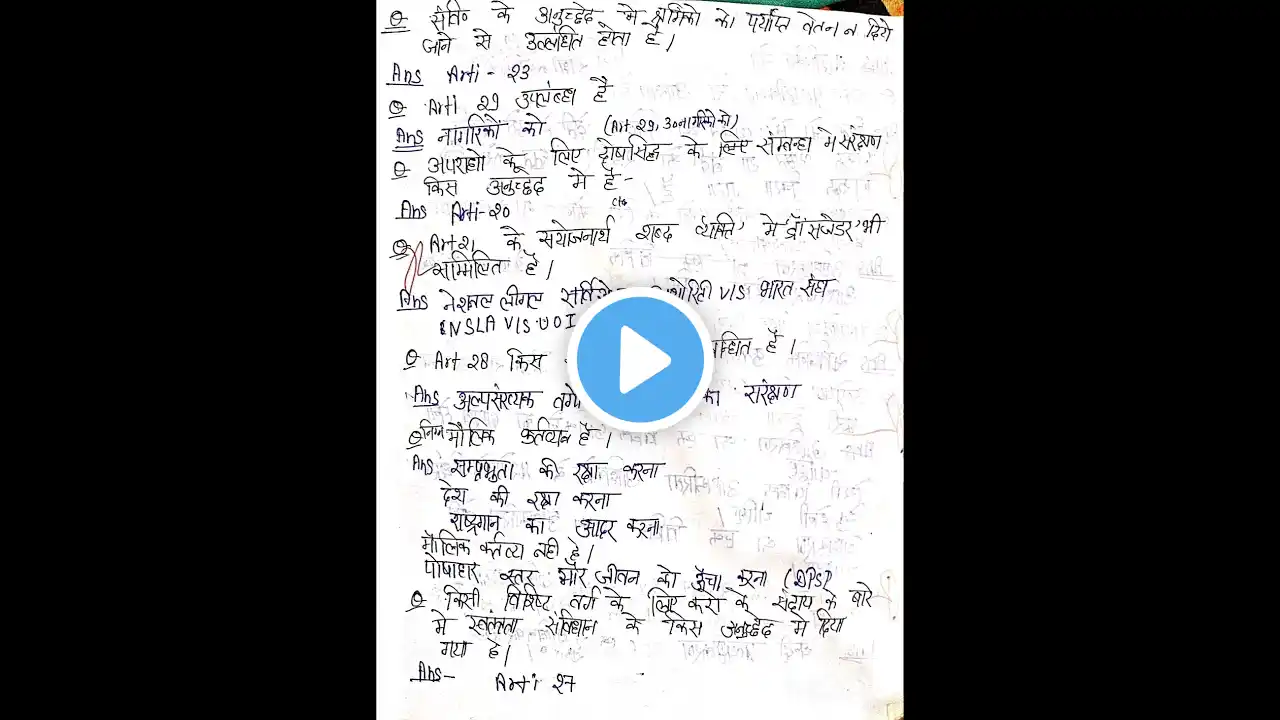 Q संवि० के अनुच्छेद मे श्रमिको को पर्याप्त वेतन न दिये
जाने से उल्लंघित होता है।
Ans Arti - 23
Q Arti 29 उपलब्ध है
Ans नागरिकों को (Art 29, 30 नागरिको को)
Q अपराधो के लिए दोषसिद्ध के लिए सम्बन्ध मे संरक्षण
किस अनुच्छेद मे है -
Ans Arti-20
Q Art 21 के प्रयोजनार्थ शब्द 'व्यक्ति' मे 'ट्रांसजेंडर' भी
सम्मिलित है।
Ans नेशनल लीगल V/S भारत संघ
NSLA V/S UOI
Q Art 28 किस है।
Ans अल्पसंख्यक का संरक्षण
Q निम्न मौलिक कर्तव्य है।
Ans सम्प्रभुता की रक्षा करना
देश की रक्षा करना
राष्ट्रगान का आदर करना
मौलिक कर्तव्य नही है।
पोषाहार स्तर और जीवन को ऊँचा करना (DPSP)
Q किसी विशिष्ट वर्ग के लिए करो के संदाय के बारे
मे स्वतंत्रता संविधान के किस अनुच्छेद मे दिया
गया है।
Ans- Arti 27